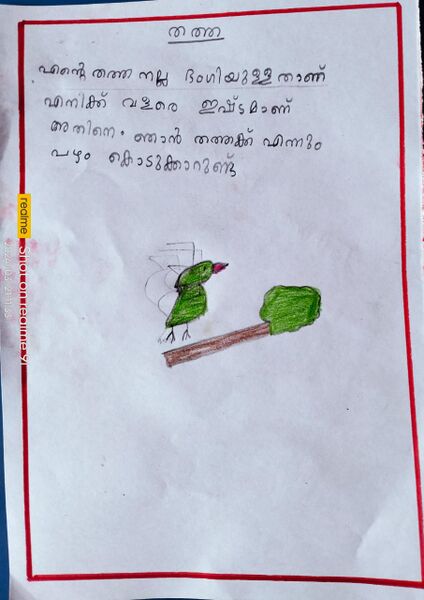 തത്ത
എന്റെ തത്ത നല്ല ഭംഗിയുള്ളതാണ്
എനിക്ക് വളരെ ഇഷ്ടമാണ്
അതിനെ. ഞാൻ തത്തക്ക് എന്നും
പഴം കൊടുക്കാറുണ്ട്
realme
Shot on realme 9i